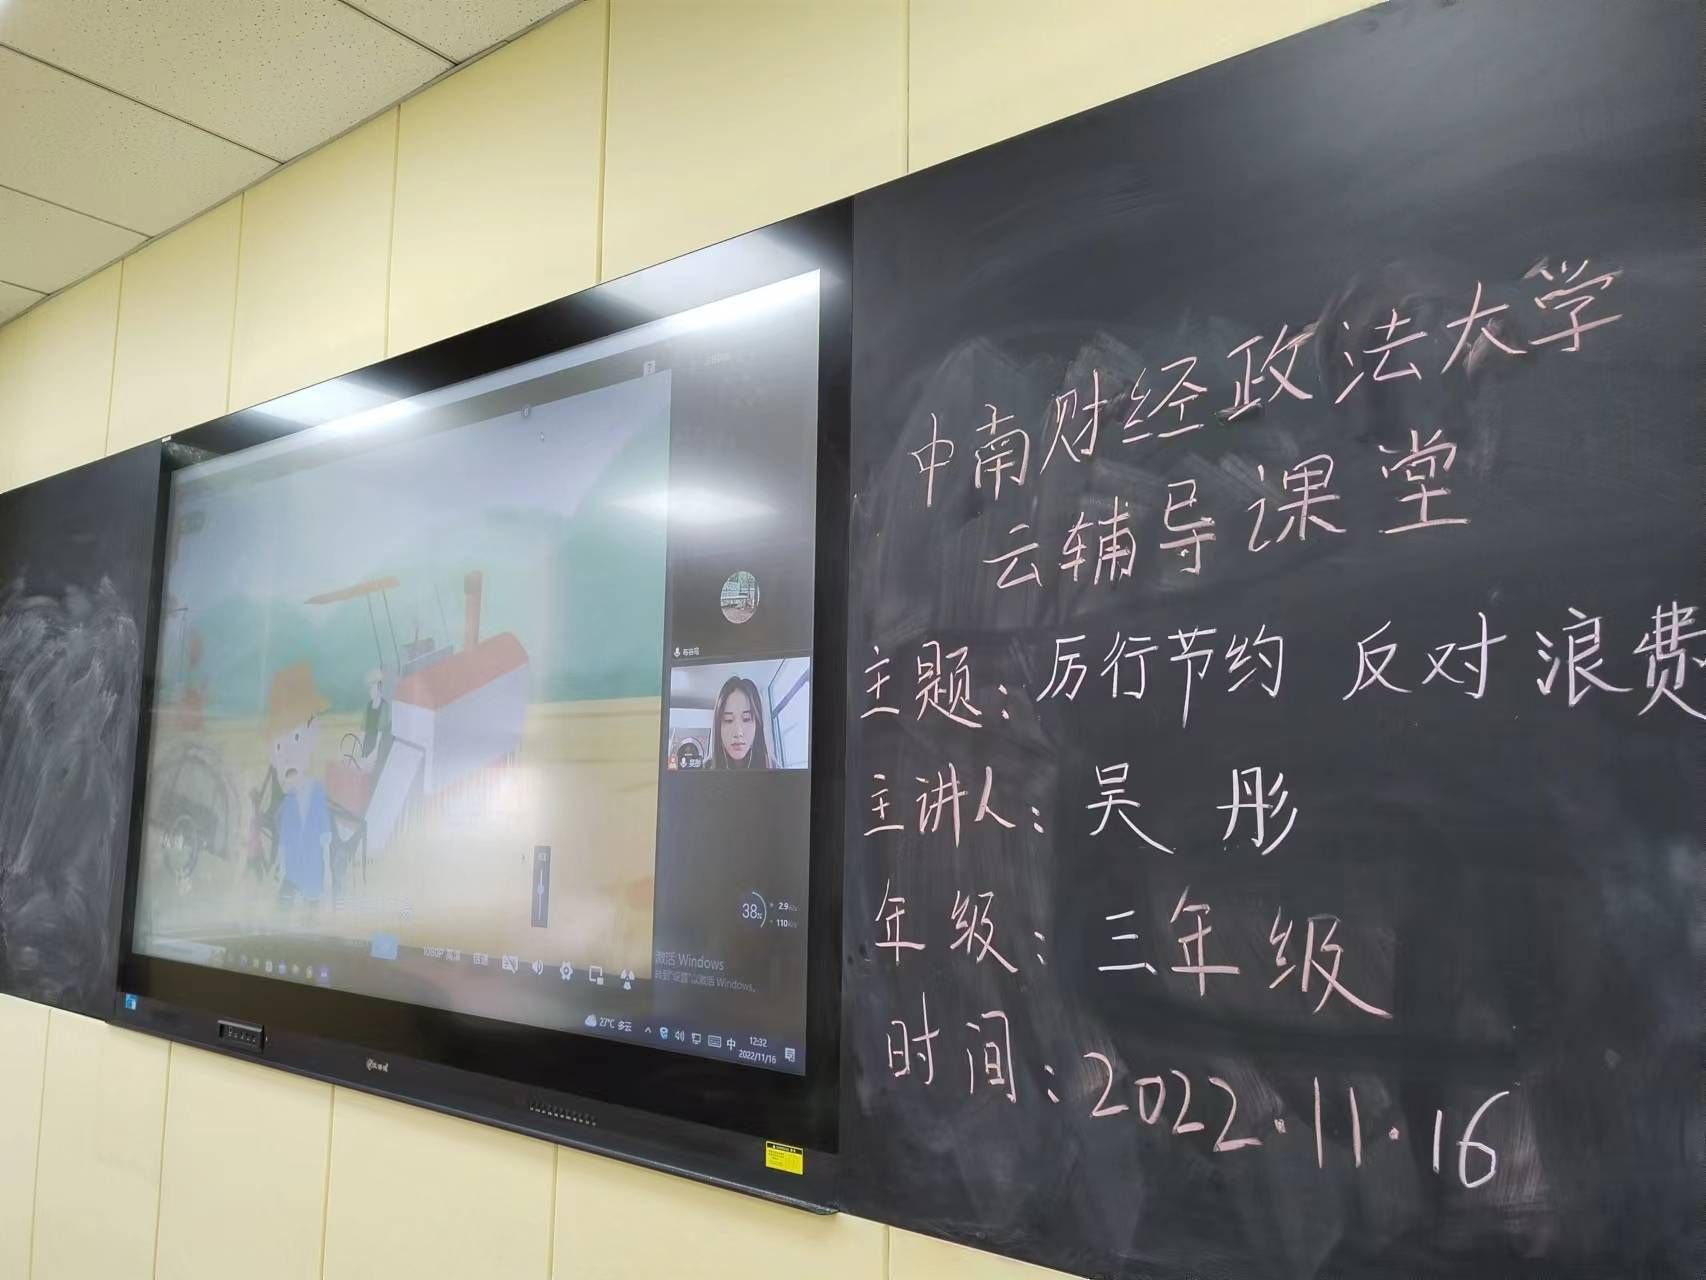 中南财经政法大学
云辅导课堂
主题：厉行节约 反对浪费
主讲人：吴 彤
年级：三年级
时间：2022.11.16
38%
激活 Windows
1080P 高清
倍速
27°C 多云
中
12:32
2022/11/16